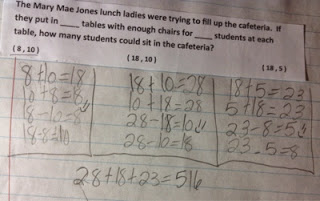 The Mary Mae Jones lunch ladies were trying to fill up the cafeteria. If
they put in _____ tables with enough chairs for _____ students at each
table, how many students could sit in the cafeteria?
(8, 10) (18, 10) (18, 5)
8+10=18 18+10=28 18+5=23
10+8=18 10+18=28 5+18=23
18-10=8 28-18=10 23-8=5
18-8=10 28-10=18 23-5=8
28+18+23=516